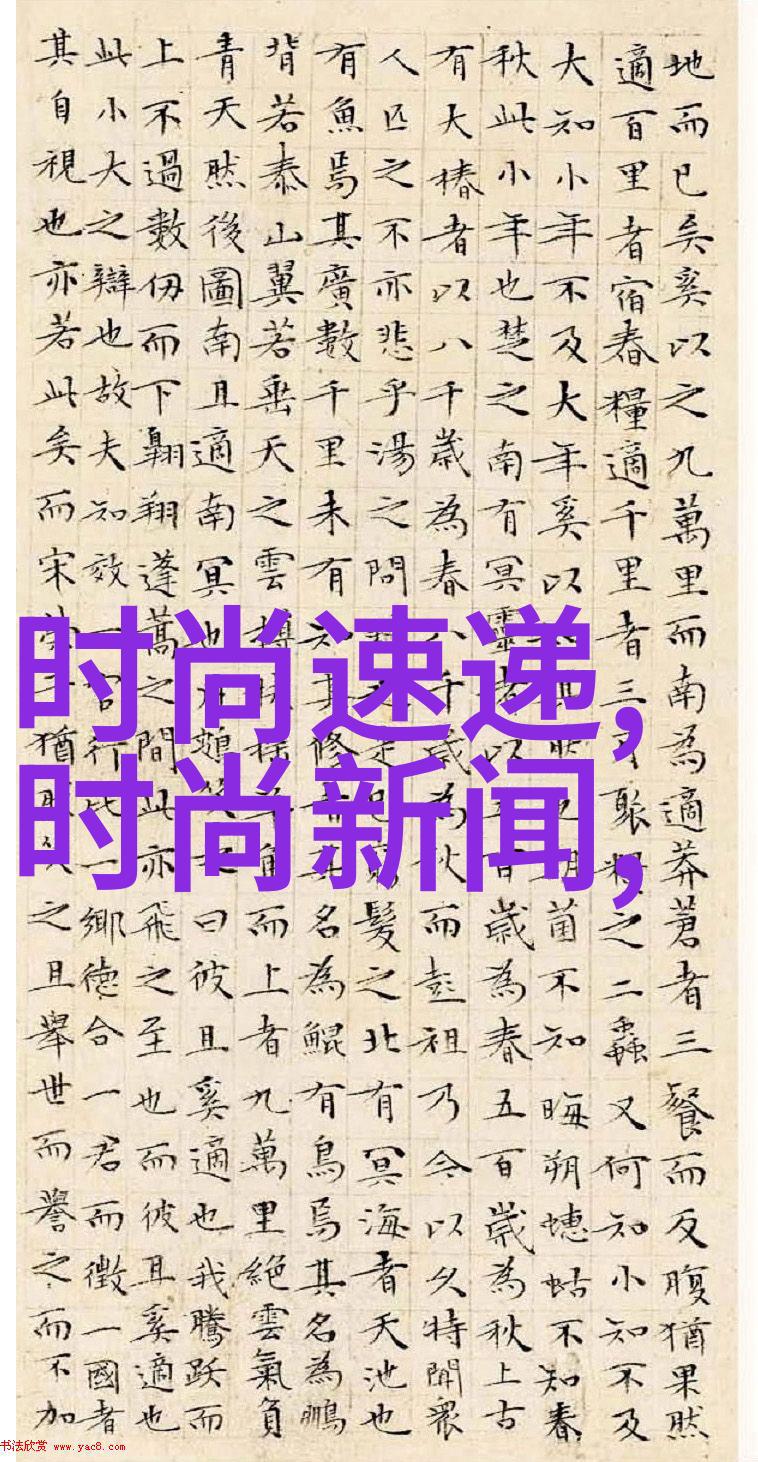 地而已矣奚以之九萬里而南為適莽蒼者三餐而反腹猶果然
適百里者宿舂糧適千里者三聚糧之二蟲又何知小知不及
大知小年不及大年奚以菌不知晦朔蟪蛄不知春
秋此小年也楚之南有冥靈者以五百歲為春五百歲為秋上古
有大椿者以八千歲為春八千歲為秋而彭祖乃今以久特聞衆
人匹之不亦悲乎湯之問髮之北有冥海者天池也
有魚焉其廣數千里未有知其修者其名為鯤有鳥焉其名為鵬
背若泰山翼若垂天之雲摶角而上者九萬里絶雲氣負
青天然後圖南且適南冥也曰彼且奚適也我騰躍而
上不過數仞而下翱翔蓬蒿之間此亦飛之至也而彼且奚適也
此小大之辯也故夫知效一官行比一鄉德合一君而徵一國者
其自視也亦若此矣而宋猶之且舉世而譽之而不加
时尚速递,
时尚新闻,
书法欣赏 www.yac8.com